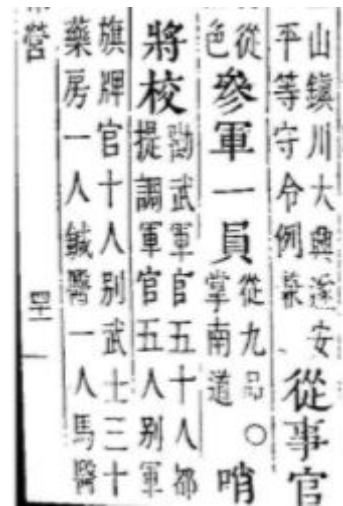 山鎮川大興安
平等守令例兼
從事官
從
色
參軍一員
從九品
掌南道
○哨
將校
勸武軍官五十人都
提調軍官五人別軍
旗牌官十人別武士三十
藥房一人鍼醫一人馬醫
營